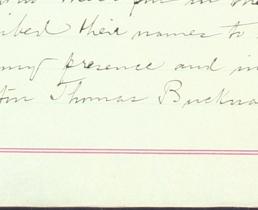 ribed their names to
my presence and in
ton Thomas Buckna